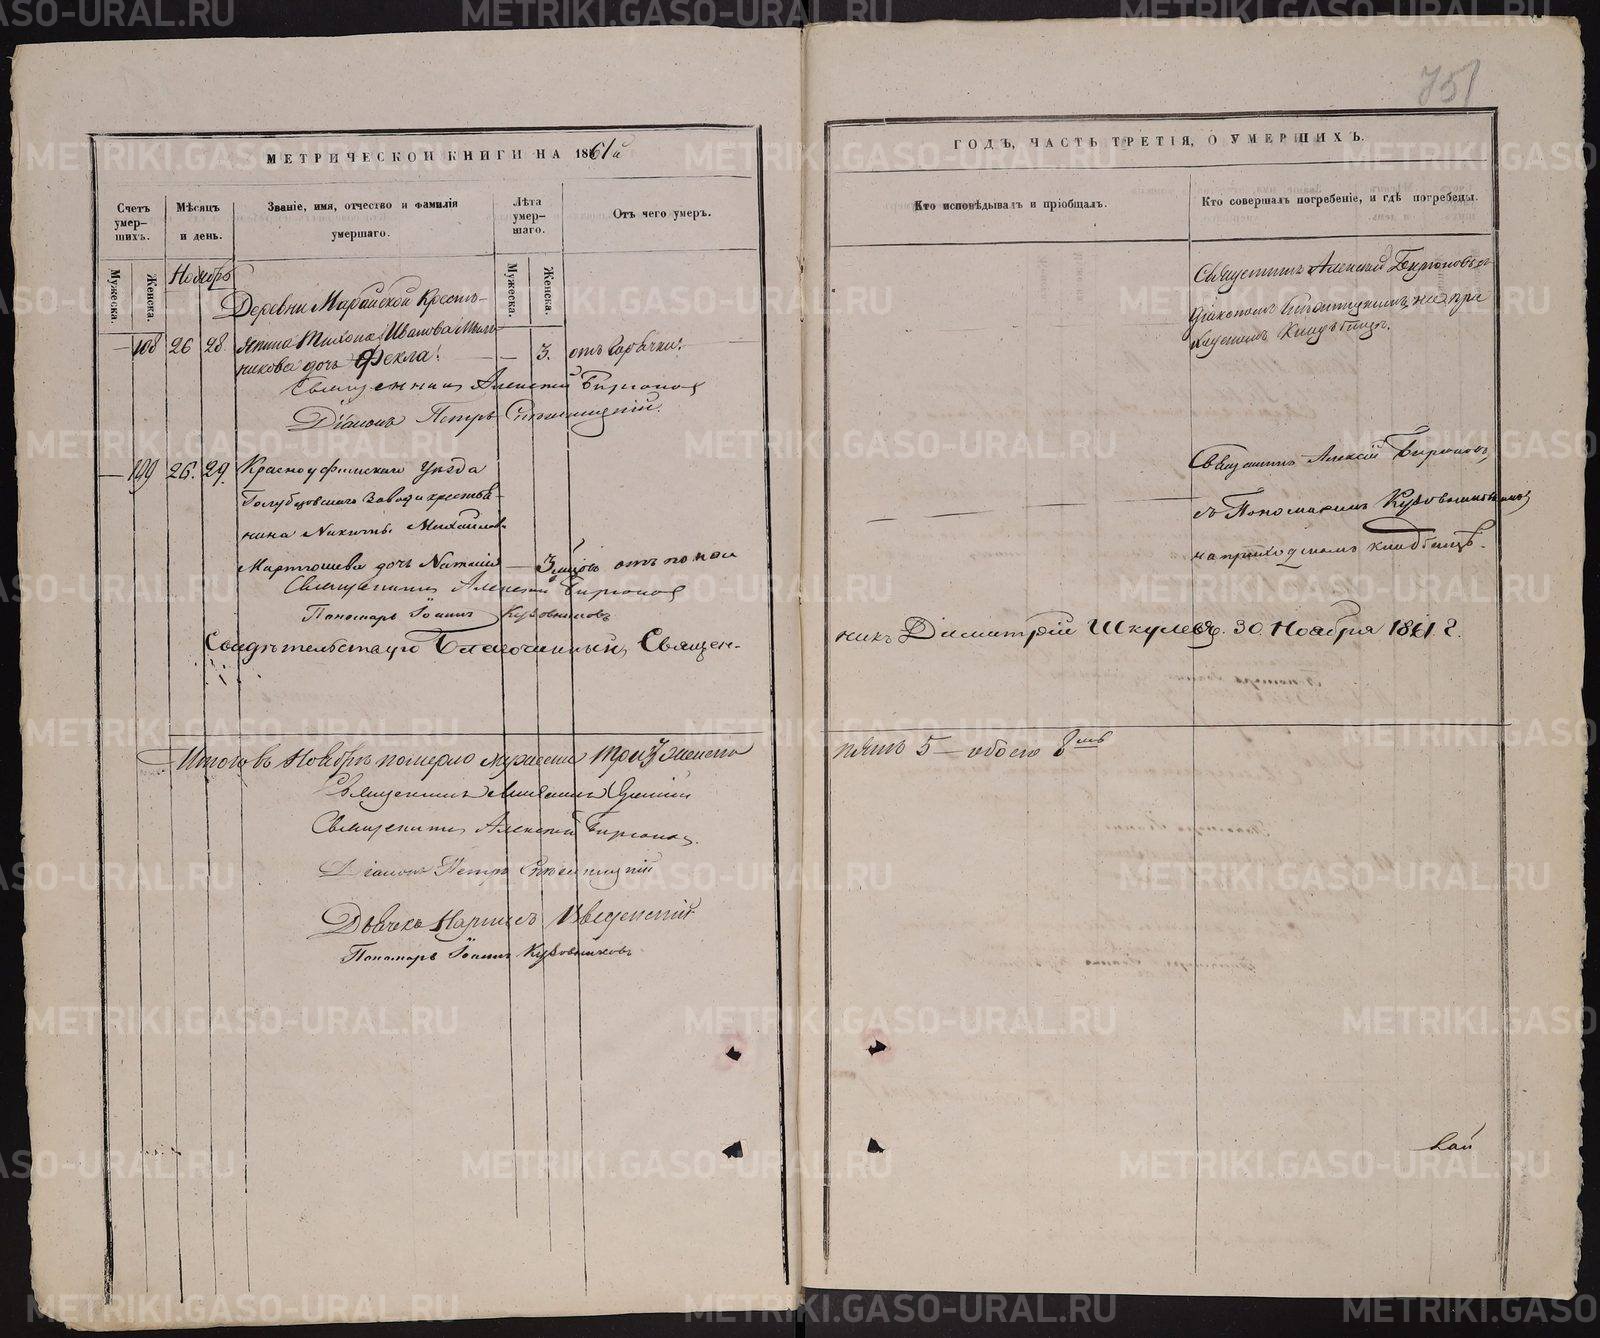 751
МЕТРИЧЕСКОЙ КНИГИ НА 1861й
ГОДЪ, ЧАСТЬ ТРЕТІЯ, О УМЕРШИХЪ.
Счетъ умер-шихъ.
Мѣсяцъ и день.
Званіе, имя, отчество и фамилія умершаго.
Лѣта умер-шаго.
Отъ чего умеръ.
Кто исповѣдывалъ и пріобщалъ.
Кто совершалъ погребеніе, и гдѣ погребены.
Мужеска.
Женска.
Мужеска.
Женска.
Ноябрь
Деревни Крестъ-
— 108 26 28. янина Тихона Иванова
никова дочь Фекла. — 3. отъ горячки.
Священникъ Алексѣй Бирюковъ
Діаконъ Петръ
Священникъ Алексѣй Бирюковъ съ
Діакономъ на при
Кладбищѣ.
— 109 26. 29. Красноуфимскаго Уѣзда
Завода крестья-
нина Никиты Михайлов
Мартюшева дочь Наталія — 3 мѣсяцовъ отъ поноса
Священникъ Алексѣй Бирюковъ
Пономарь Іоаннъ Кузовниковъ
Священникъ Алексѣй Бирюковъ,
съ Пономаремъ Кузовниковымъ
на приходскомъ кладбищѣ.
Свидѣтельствую Благочинный, Священ-
никъ Димитрій Шкулевъ. 30 Ноября 1861 г.
Итого въ Ноябрѣ померло мужеска три 3 женска
пять 5 — обоего 8мь
Священникъ
Священникъ Алексѣй Бирюковъ.
Діаконъ Петръ
Дьячекъ Введенскій
Пономарь Іоаннъ Кузовниковъ
METRIKI.GASO-URAL.RU